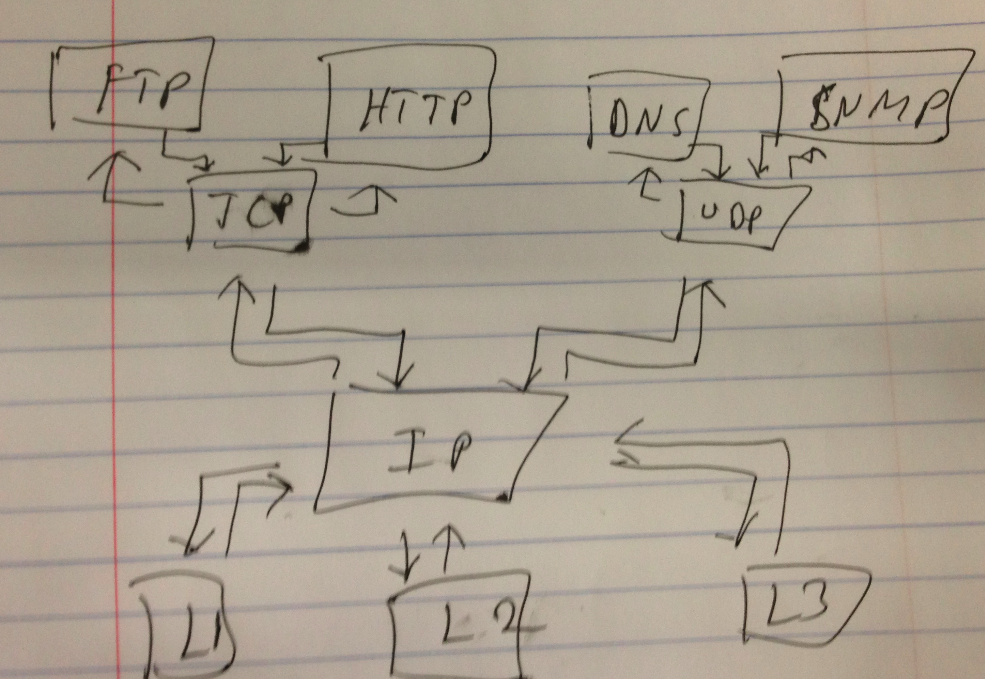 FTP HTTP DNS SNMP
TCP UDP
IP
L1 L2 L3